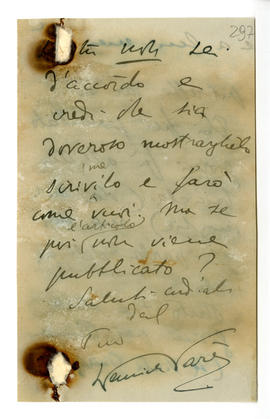 297
tu non sei
d'accordo e
credi che sia
doveroso mostrarglielo
scrivilo e farò
me
come vuoi, ma se
l'articolo
poi non viene
pubblicato?
Saluti cordiali
dal
Tuo
Daniele Varè